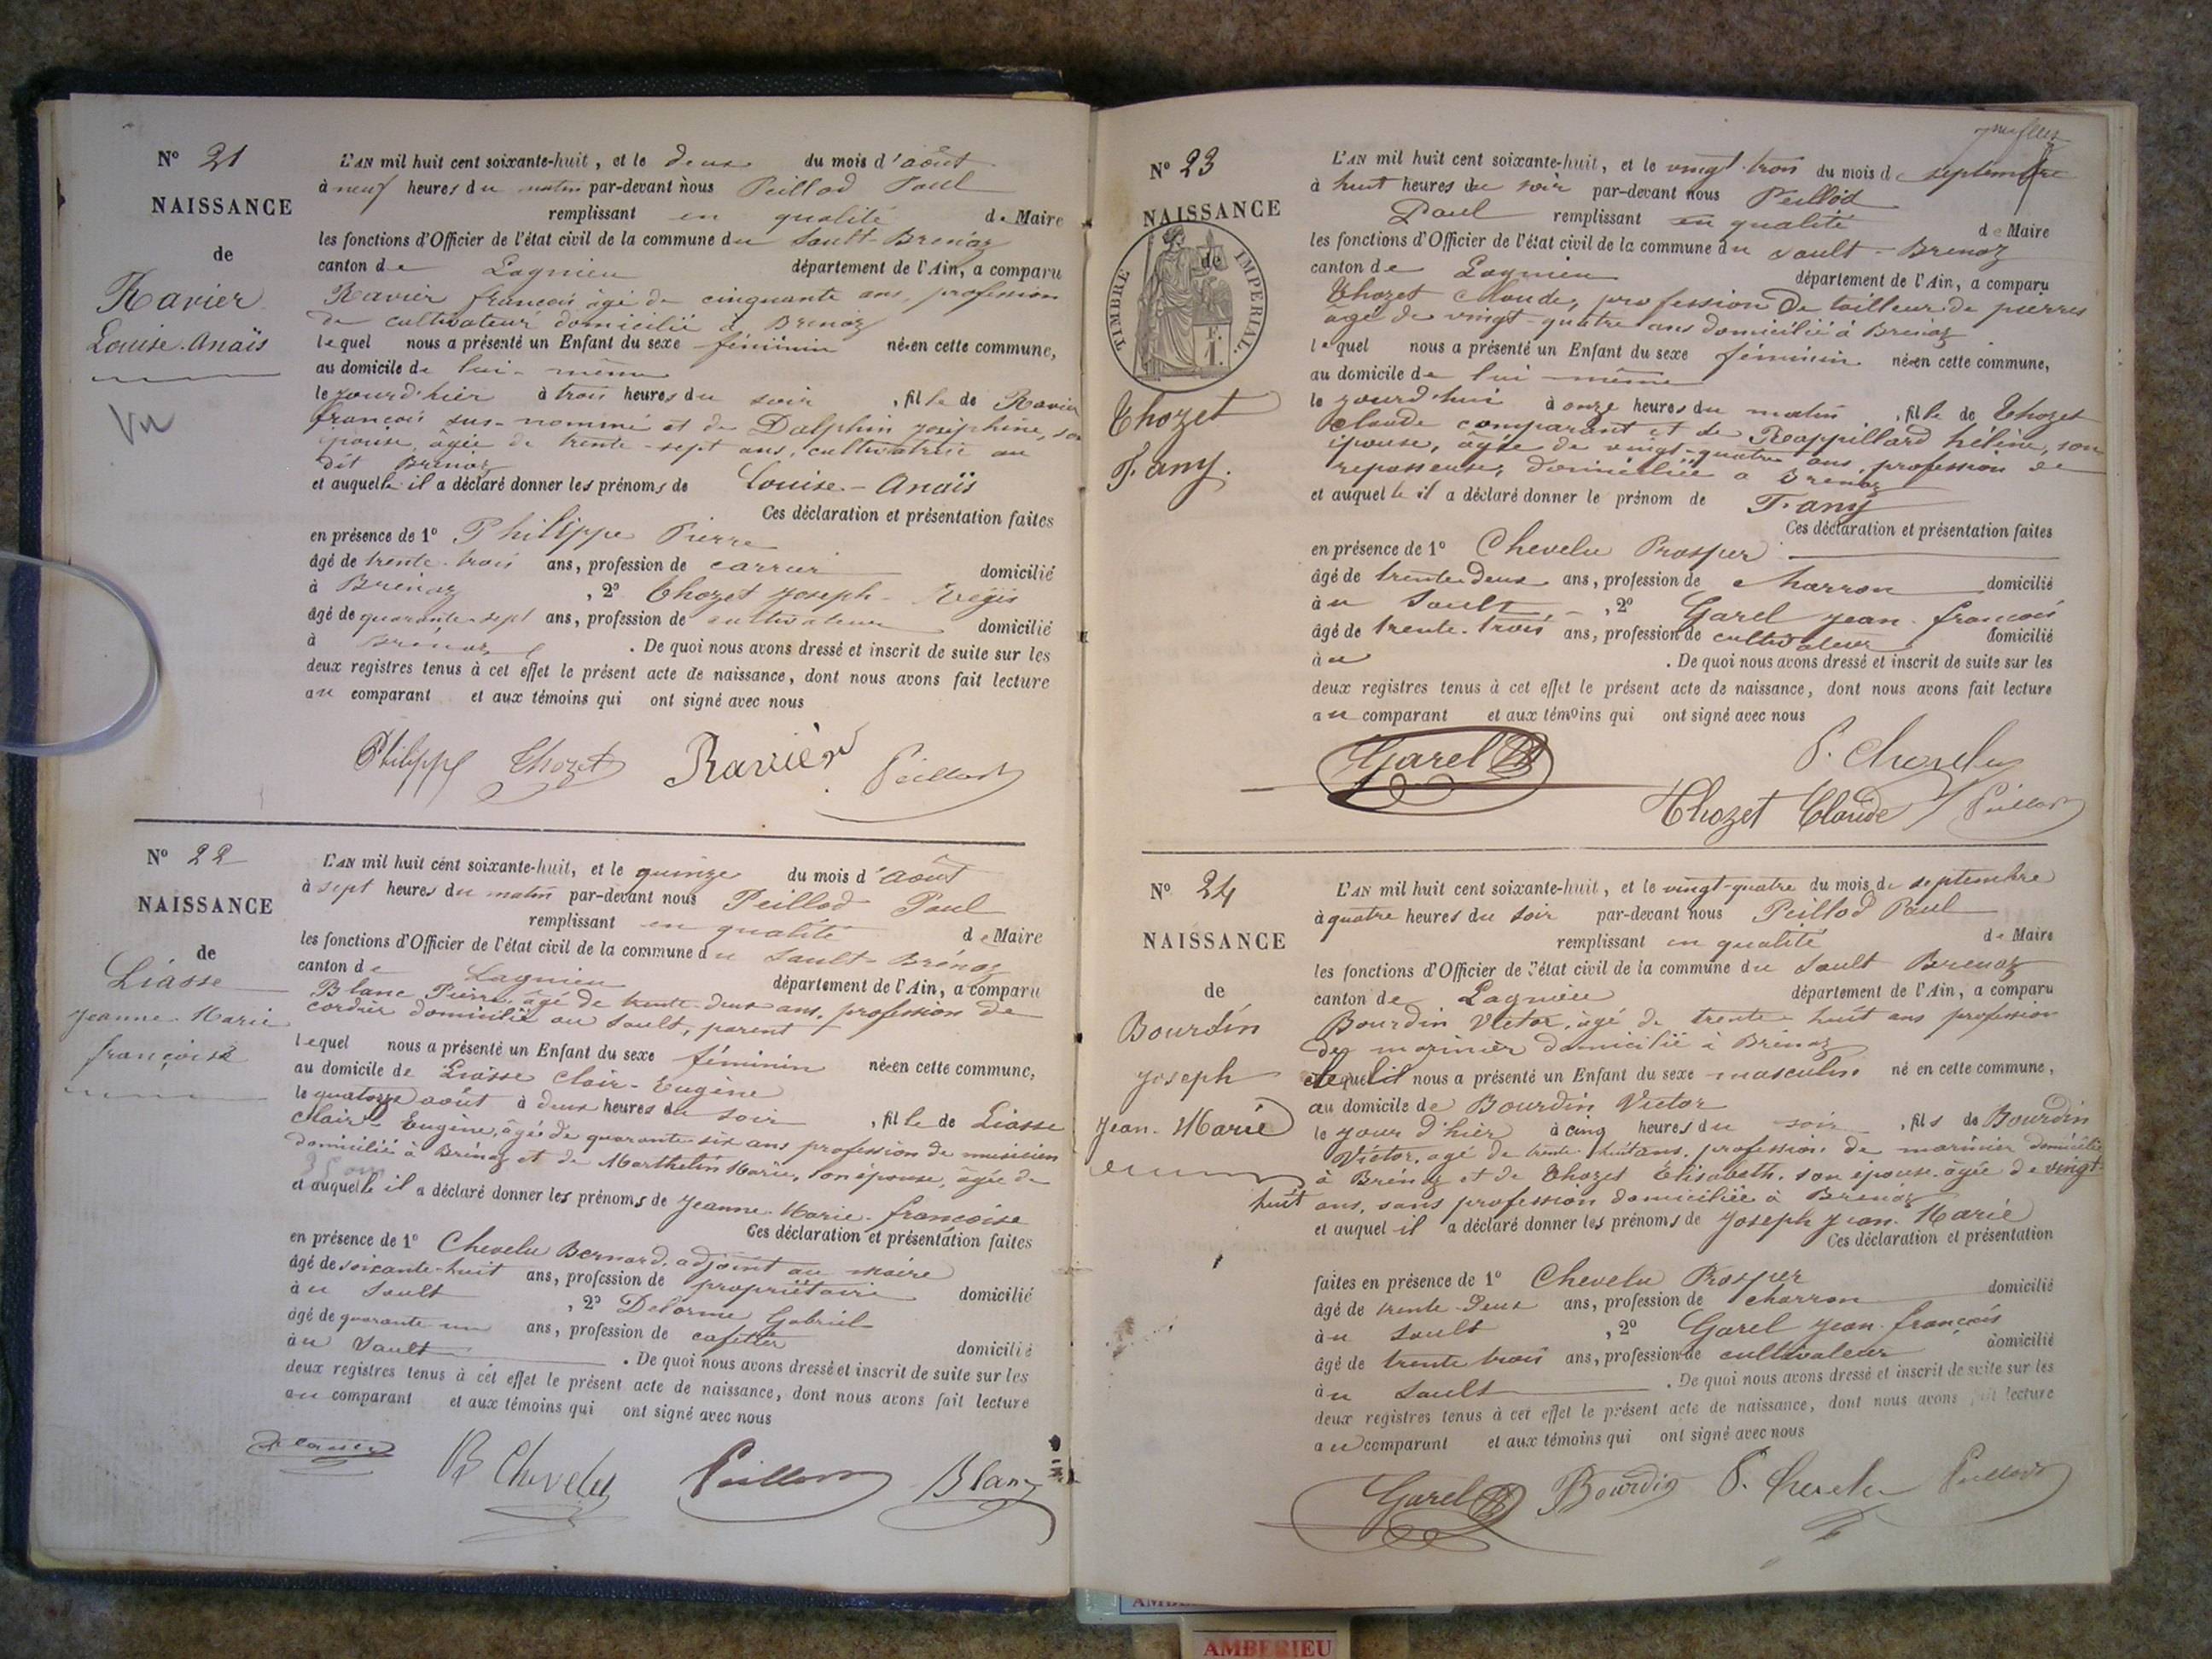 N° 21
NAISSANCE
de
Ravier
Louise-Anaïs
Vu
L'AN mil huit cent soixante-huit, et le deux du mois d'août
à neuf heures du matin par-devant nous Peillod Paul
remplissant en qualité de Maire
les fonctions d'Officier de l'état civil de la commune du Sault-Brénaz
canton de Lagnieu département de l'Ain, a comparu
Ravier françois âgé de cinquante ans, profession
de cultivateur domicilié à Brenaz
lequel nous a présenté un Enfant du sexe féminin née en cette commune,
au domicile de lui-même
le jourd'hier à trois heures du soir, fille de Ravier
françois sus-nommé et de Dalphin joséphine, son
épouse, âgée de trente-sept ans, cultivatrice au
dit Brénaz
et auquelle il a déclaré donner les prénoms de Louise-Anaïs
Ces déclaration et présentation faites
en présence de 1° Philippe Pierre
âgé de trente-trois ans, profession de carrier domicilié
à Brénaz, 2° Thozet joseph-Régis
âgé de quarante-sept ans, profession de cultivateur domicilié
à Brénaz. De quoi nous avons dressé et inscrit de suite sur les
deux registres tenus à cet effet le présent acte de naissance, dont nous avons fait lecture
au comparant et aux témoins qui ont signé avec nous
Philippe Thozet Ravier Peillod
N° 22
NAISSANCE
de
Liasse
Jeanne-Marie
françoise
L'AN mil huit cent soixante-huit, et le quinze du mois d'août
à sept heures du matin par-devant nous Peillod Paul
remplissant en qualité de Maire
les fonctions d'Officier de l'état civil de la commune du Sault-Brénaz
canton de Lagnieu département de l'Ain, a comparu
Blanc Pierre, âgé de trente-deux ans, profession de
cordier domicilié au Sault, parent
lequel nous a présenté un Enfant du sexe féminin née en cette commune,
au domicile de Liasse Clair-Eugène
le quatorze août à deux heures du soir, fille de Liasse
Clair-Eugène, âgée de quarante-six ans profession de musicien
domicilié à Brénaz et de Marthelin Marie, son épouse, âgée de
35 ans
et auquelle il a déclaré donner les prénoms de Jeanne-Marie-françoise
Ces déclaration et présentation faites
en présence de 1° Chevelu Bernard, adjoint au maire
âgé de soixante-huit ans, profession de propriétaire domicilié
au Sault, 2° Delorme Gabriel
âgé de quarante un ans, profession de cafetier domicilié
au Sault. De quoi nous avons dressé et inscrit de suite sur les
deux registres tenus à cet effet le présent acte de naissance, dont nous avons fait lecture
au comparant et aux témoins qui ont signé avec nous
B Chevelu Peillod Blanc
N° 23
NAISSANCE
de
TIMBRE IMPERIAL.
Thozet
Fany.
L'AN mil huit cent soixante-huit, et le vingt-trois du mois de septembre
à huit heures du soir par-devant nous Peillod
Paul remplissant en qualité de Maire
les fonctions d'Officier de l'état civil de la commune du Sault-Brenaz
canton de Lagnieu département de l'Ain, a comparu
Thozet Claude, profession de tailleur de pierres
âgé de vingt-quatre ans domicilié à Brenaz
lequel nous a présenté un Enfant du sexe féminin née en cette commune,
au domicile de lui-même
le jourd'hui à onze heures du matin, fille de Thozet
Claude comparant et de Rappillard hélène, son
épouse, âgée de vingt-quatre ans, profession de
repasseuse, domiciliée à Brenaz
et auquelle il a déclaré donner le prénom de Fany
Ces déclaration et présentation faites
en présence de 1° Chevelu Prosper
âgé de trente-deux ans, profession de charron domicilié
au Sault, 2° Garel Jean-françois
âgé de trente-trois ans, profession de cultivateur domicilié
au. De quoi nous avons dressé et inscrit de suite sur les
deux registres tenus à cet effet le présent acte de naissance, dont nous avons fait lecture
au comparant et aux témoins qui ont signé avec nous
Garel P. Chevelu
Thozet Claude Peillod
N° 24
NAISSANCE
de
Bourdin
Joseph
Jean-Marie
L'AN mil huit cent soixante-huit, et le vingt-quatre du mois de septembre
à quatre heures du soir par-devant nous Peillod Paul
remplissant en qualité de Maire
les fonctions d'Officier de l'état civil de la commune du Sault Brenaz
canton de Lagnieu département de l'Ain, a comparu
Bourdin Victor, âgé de trente-huit ans profession
de marinier domicilié à Brénaz
lequel il nous a présenté un Enfant du sexe masculin né en cette commune,
au domicile de Bourdin Victor
le jour d'hier à cinq heures du soir, fils de Bourdin
Victor, agé de trente-huit ans, profession de marinier domicilié
à Brénaz et de Thozet Elisabeth, son épouse âgée de vingt-
huit ans, sans profession domiciliée à Brenaz
et auquel il a déclaré donner les prénoms de Joseph Jean-Marie
Ces déclaration et présentation
faites en présence de 1° Chevelu Prosper domicilié
âgé de trente-deux ans, profession de charron
au Sault, 2° Garel Jean-françois
âgé de trente trois ans, profession de cultivateur domicilié
au Sault. De quoi nous avons dressé et inscrit de suite sur les
deux registres tenus à cet effet le présent acte de naissance, dont nous avons fait lecture
au comparant et aux témoins qui ont signé avec nous
Garel Bourdin P. Chevelu Peillod
AMBERIEU